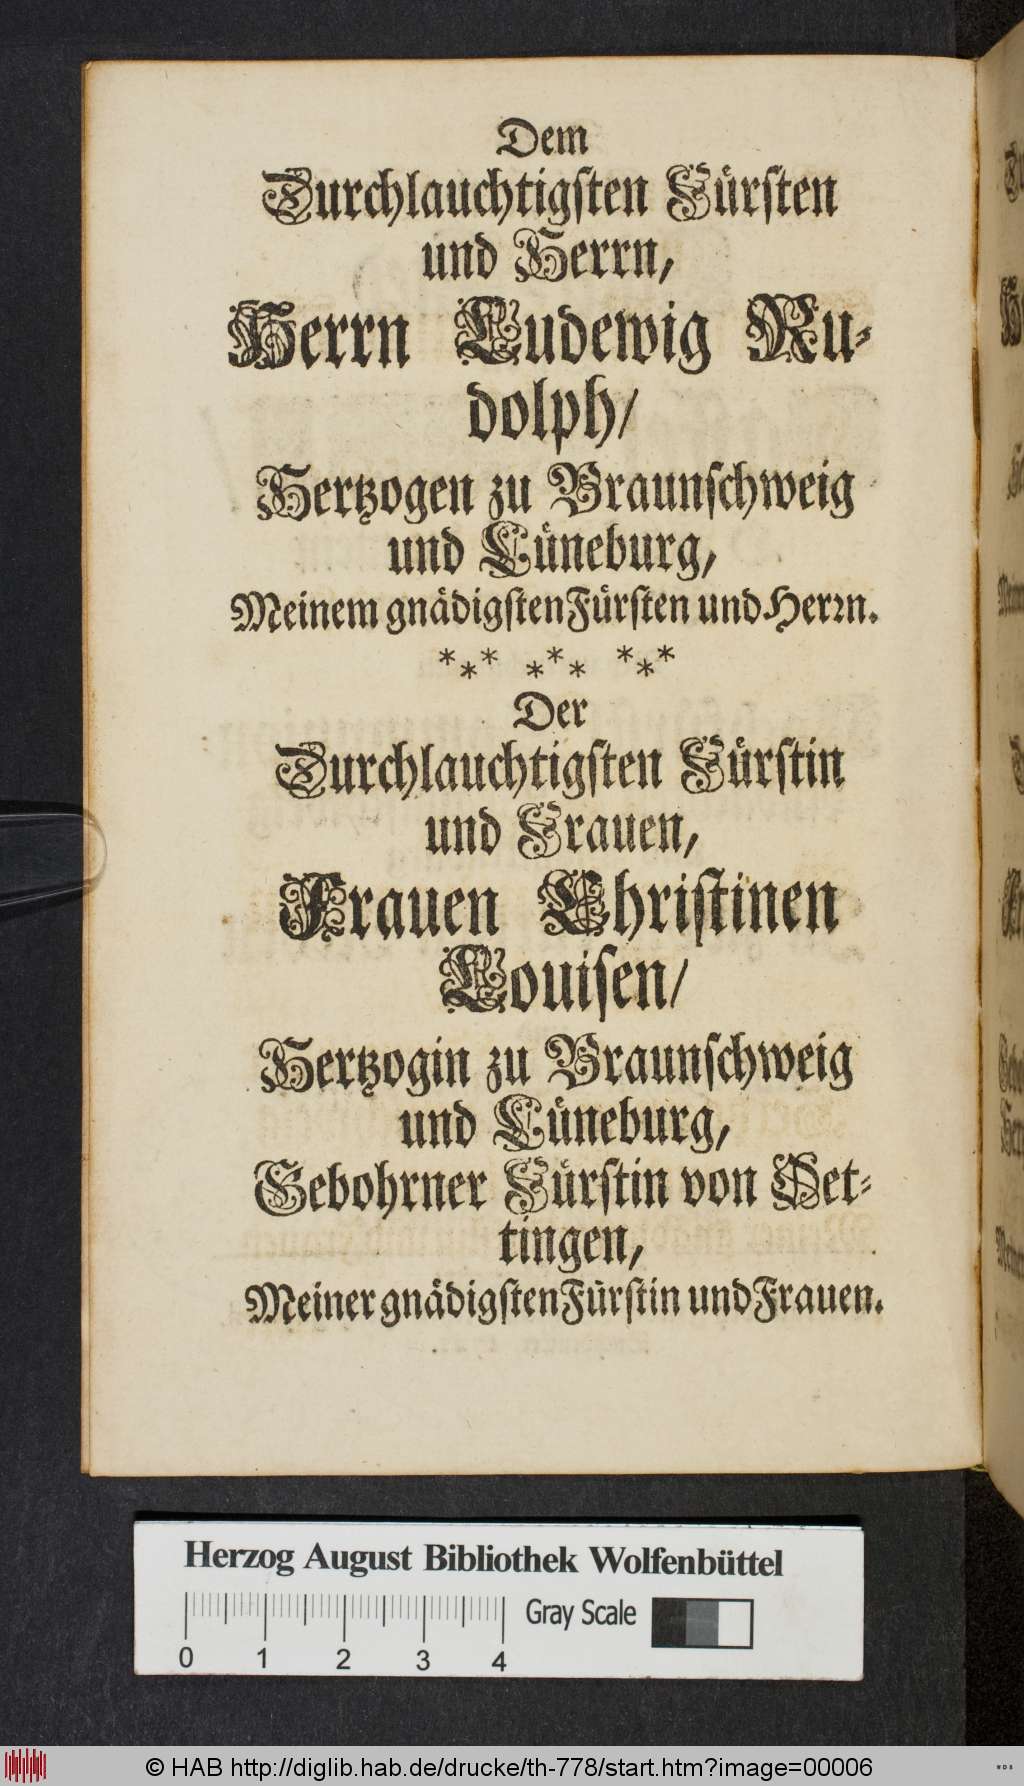 Dem
Durchlauchtigſten Fürſten
und Herrn,
Herrn Ludewig Ru-
dolph/
Hertzogen zu Braunſchweig
und Lüneburg,
Meinem gnädigſten Fürſten und Herrn.
*** *** ***
Der
Durchlauchtigſten Fürſtin
und Frauen,
Frauen Chriſtinen
Louiſen/
Hertzogin zu Braunſchweig
und Lüneburg,
Gebohrner Fürſtin von Oet-
tingen,
Meiner gnädigſten Fürſtin und Frauen.
Herzog August Bibliothek Wolfenbüttel
Gray Scale
0 1 2 3 4
© HAB http://diglib.hab.de/drucke/th-778/start.htm?image=00006